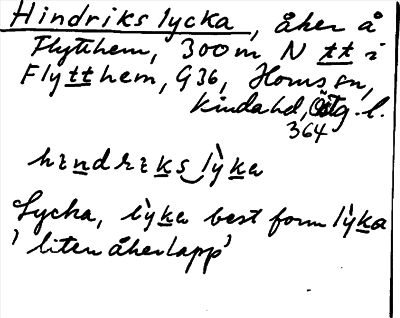 Hindriks lycka, åker å
Flytthem, 300 m N tt i
Flytthem, G36, Horns sn,
Kinda hd, Östg. l.
364
hindriks lỳka
Lycka, lỳka best form lỳka
'liten åkerlapp'